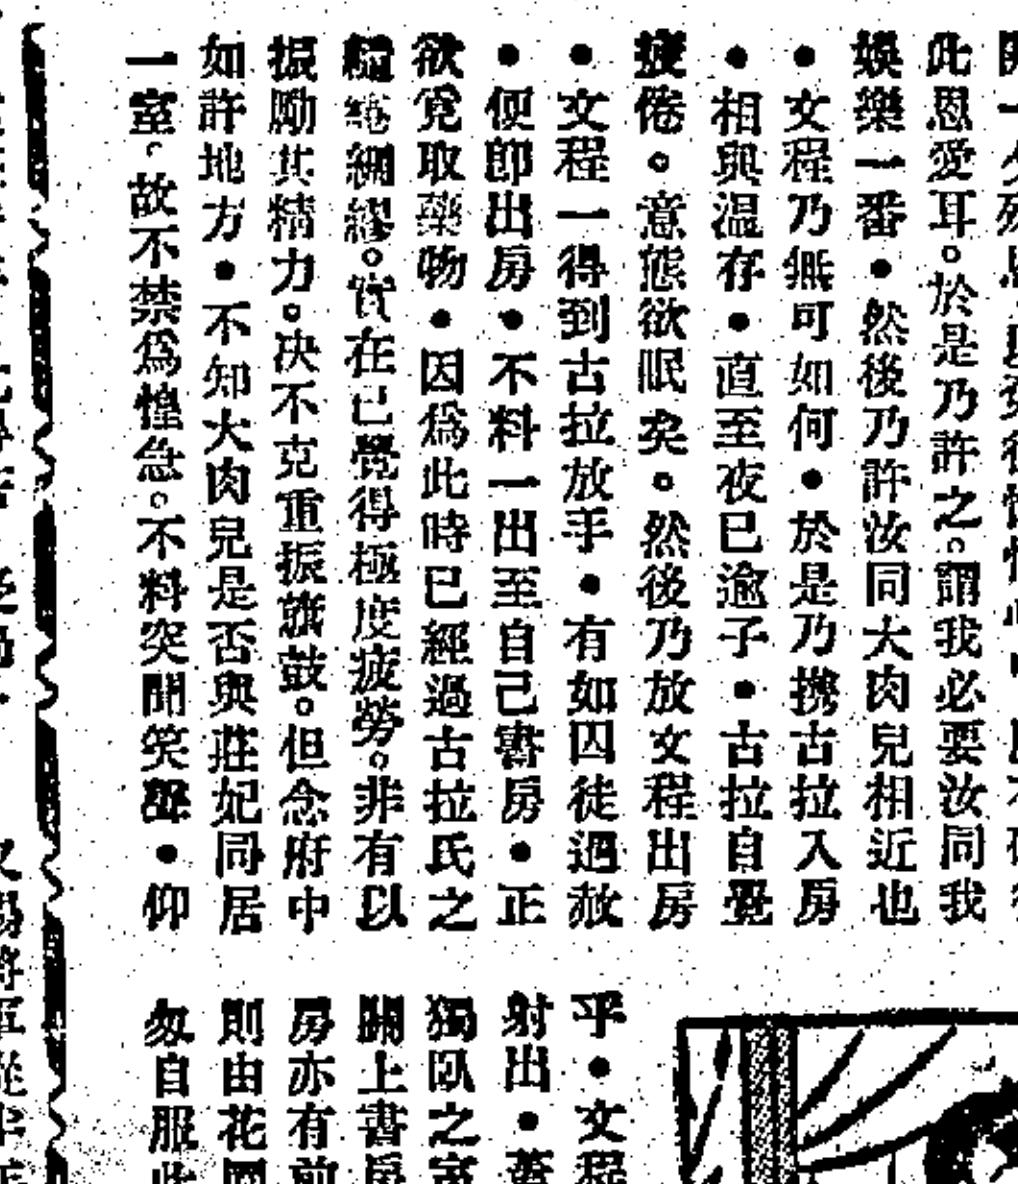 此恩愛耳。於是乃許之。謂我必要汝同我
娛樂一番●然後乃許汝同大肉兒相近也
●文程乃無可如何●於是乃携古拉入房
●相與温存●直至夜已逾子●古拉自覺
疲倦。意態欲眠矣。然後乃放文程出房
●文程一得到古拉放手●有如囚徒遇赦
●便即出房●不料一出至自己書房●正
欲覓取藥物●因爲此時已經過古拉氏之
纏綣綢繆。實在已覺得極度疲勞。非有以
振勵其精力。决不克重振旗鼓。但念府中
如許地方●不知大肉兒是否與莊妃同居
一室。故不禁爲惶急。不料突聞笑聲●仰
乎●文程
射出●
獨臥之室
關上書房
房亦有前
則由花園
匆自服此